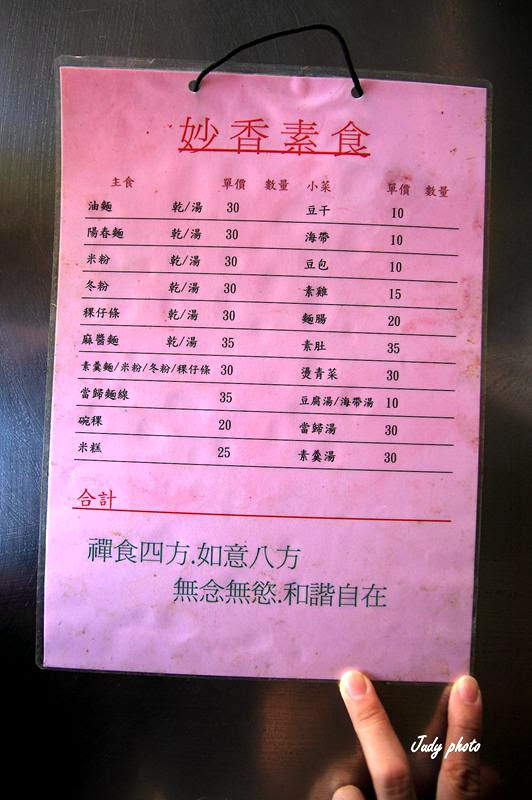 妙香素食
主食 單價 數量 小菜 單價 數量
油麵 乾/湯 30 豆干 10
陽春麵 乾/湯 30 海帶 10
米粉 乾/湯 30 豆包 10
冬粉 乾/湯 30 素雞 15
粿仔條 乾/湯 30 麵腸 20
麻醬麵 乾/湯 35 素肚 35
素羹麵/米粉/冬粉/粿仔條 30 燙青菜 30
當歸麵線 35 豆腐湯/海帶湯 10
碗粿 20 當歸湯 30
米糕 25 素羹湯 30
合計
禪食四方.如意八方
無念無慾.和諧自在
Judy photo